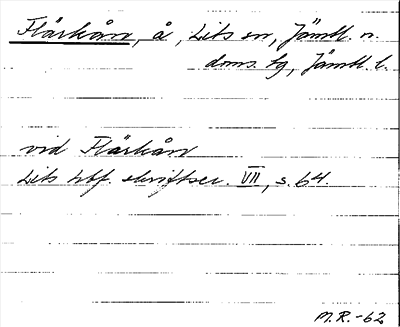 Flärkån, å, Lits sn, Jämtl. n.
doms. tg, Jämtl. l.
vid Flärkån
Lits hbf. skriftser. VII, s. 64.
M.R.-62